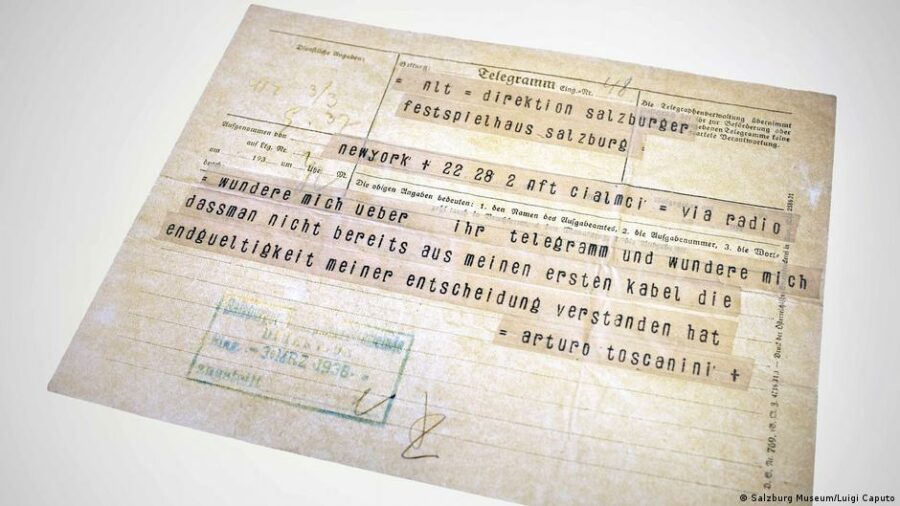 Dienstliche Angaben:
Gattung:
Telegramm
Eing.-Nr. 418
Die Telegraphenverwaltung übernimmt
zur Beförderung oder
Telegramme keine
Verantwortung.
= nlt = direktion salzburger
festspielhaus salzburg
Aufgenommen von
auf Ltg. Nr.
am 193 um Uhr M.
durch
newyork + 22 28 2 nft cialmci = via radio
Die obigen Angaben bedeuten: 1. den Namen des Aufgabeamtes, 2. die Aufgabenummer, 3. die Wort-
= wundere mich ueber ihr telegramm und wundere mich
dassman nicht bereits aus meinen ersten kabel die
endgueltigkeit meiner entscheidung verstanden hat
= arturo toscanini +
DIREKTION
Eing. - 3. MRZ 1938
© Salzburg Museum/Luigi Caputo